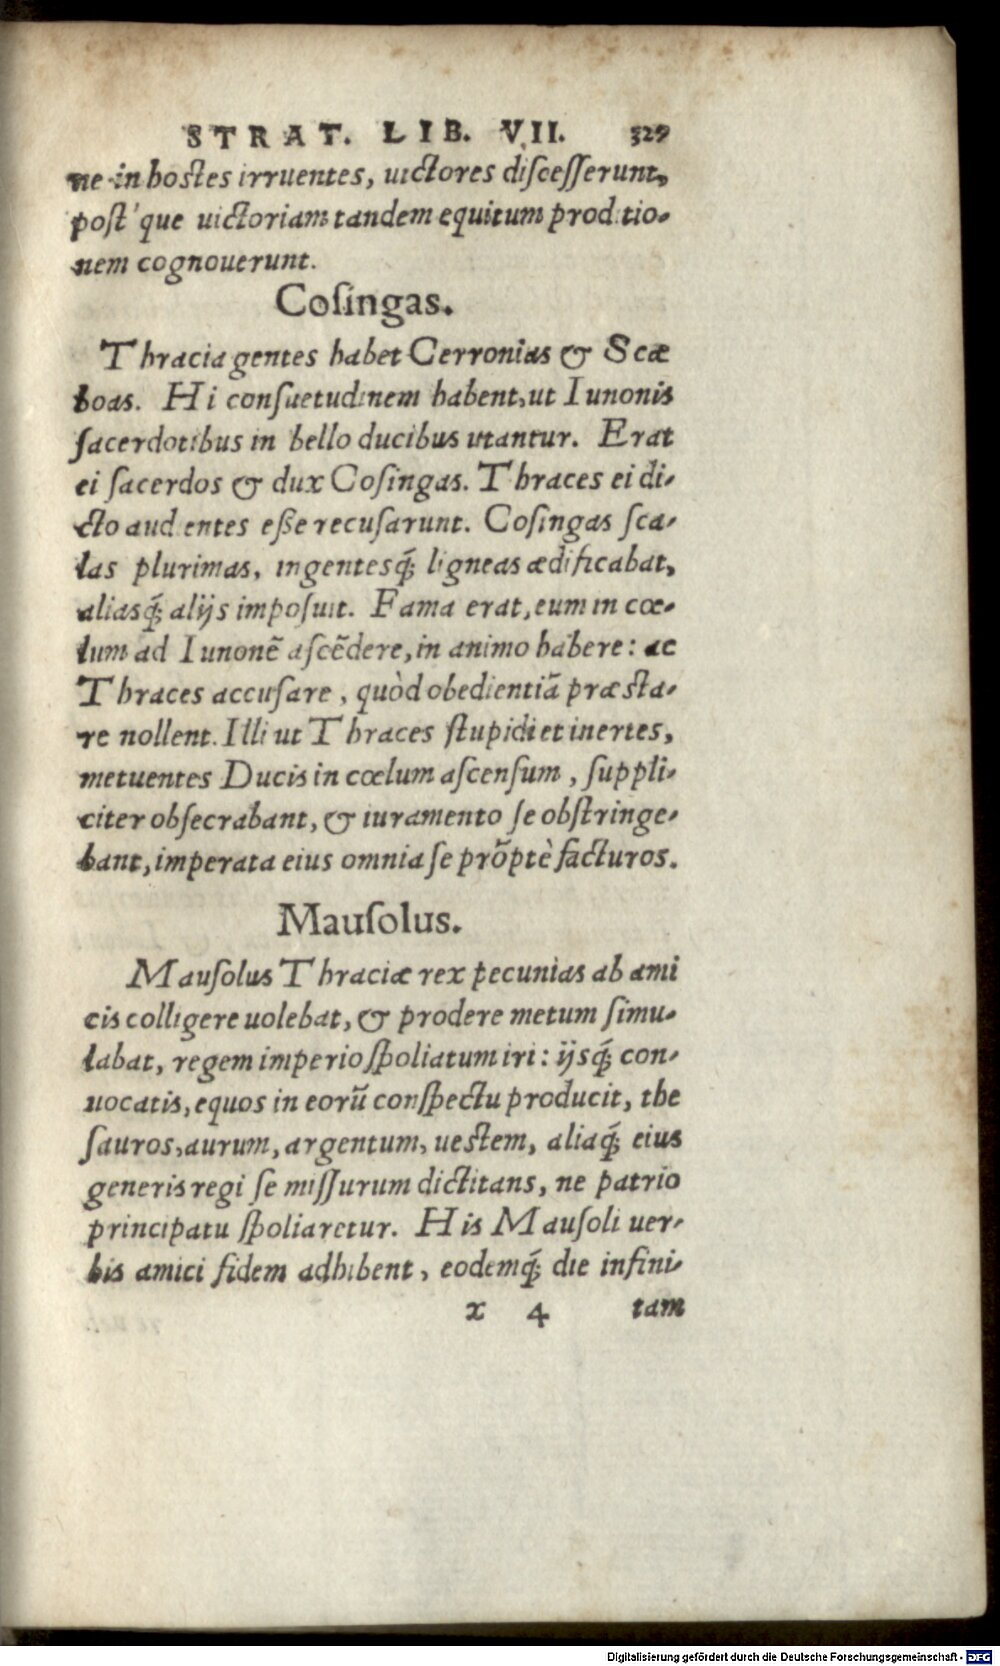 STRAT. LIB. VII. 329
ne in hostes irruentes, uictores discesserunt,
post'que uictoriam tandem equitum proditio-
nem cognouerunt.
Cosingas.
Thracia gentes habet Cerronias & Scæ
boas. Hi consuetudinem habent, ut Iunonis
sacerdotibus in bello ducibus utantur. Erat
ei sacerdos & dux Cosingas. Thraces ei di-
cto audientes eße recusarunt. Cosingas sca-
las plurimas, ingentesq́; ligneas ædificabat,
aliasq́; alijs imposuit. Fama erat, eum in cœ-
lum ad Iunonẽ ascẽdere, in animo habere: ac
Thraces accusare, quòd obedientiã præsta-
re nollent. Illi ut Thraces stupidi et inertes,
metuentes Ducis in cœlum ascensum, suppli-
citer obsecrabant, & iuramento se obstringe-
bant, imperata eius omnia se prõptè facturos.
Mausolus.
Mausolus Thraciæ rex pecunias ab ami
cis colligere uolebat, & prodere metum simu-
labat, regem imperio spoliatum iri: ijsq́; con-
uocatis, equos in eorũ conspectu producit, the
sauros, aurum, argentum, uestem, aliaq́; eius
generis regi se missurum dictitans, ne patrio
principatu spoliaretur. His Mausoli uer-
bis amici fidem adhibent, eodemq́; die infini-
x 4 tam
Digitalisierung gefördert durch die Deutsche Forschungsgemeinschaft - DFG